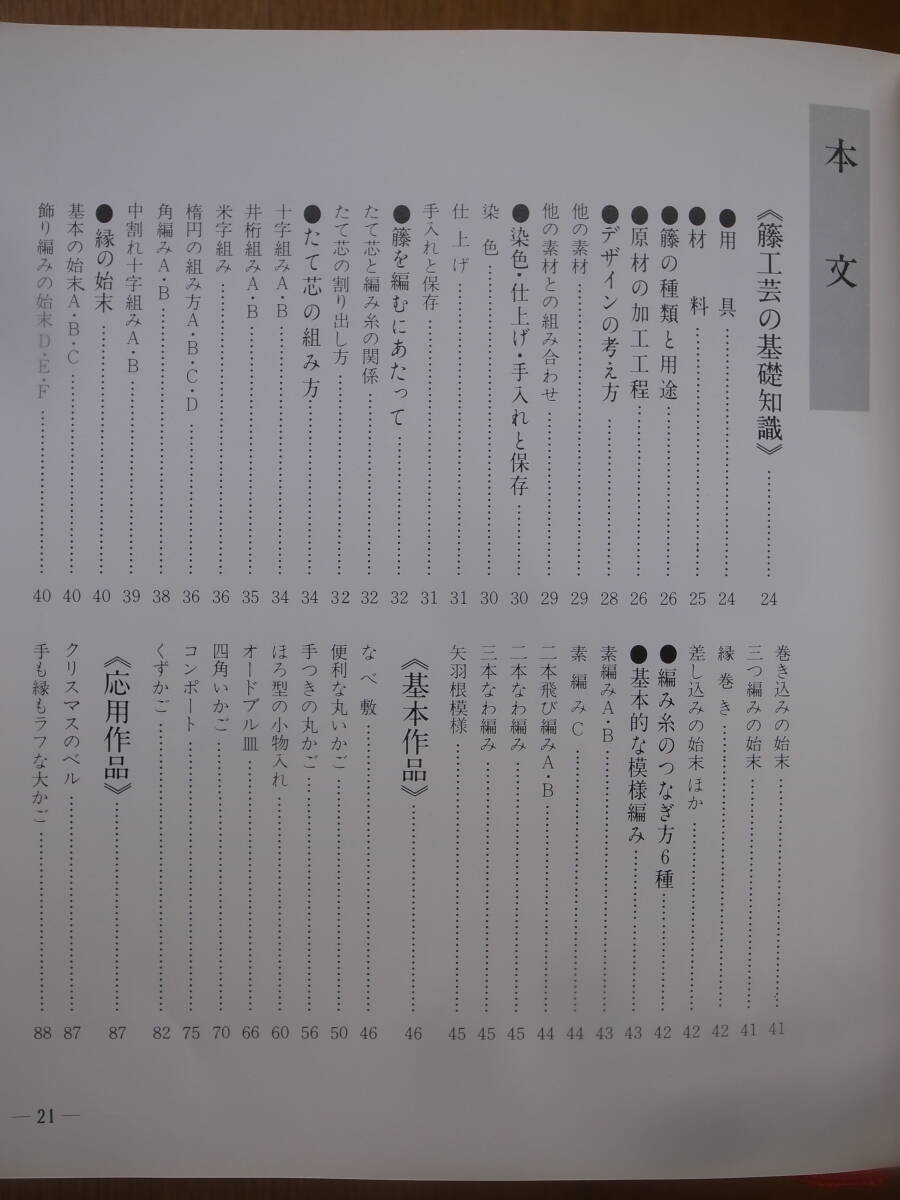 本文
《籐工芸の基礎知識》……………24
●用具……………24
●材料……………25
●籐の種類と用途……………26
●原材の加工工程……………26
●デザインの考え方……………28
他の素材……………29
他の素材との組み合わせ……………29
●染色・仕上げ・手入れと保存……………30
染色……………30
仕上げ……………31
手入れと保存……………31
●籐を編むにあたって……………32
たて芯と編み糸の関係……………32
たて芯の割り出し方……………32
●たて芯の組み方……………34
十字組みA・B……………34
井桁組みA・B……………35
米字組み……………36
楕円の組み方A・B・C・D……………36
角編みA・B……………38
中割れ十字組みA・B……………39
●縁の始末……………40
基本の始末A・B・C……………40
飾り編みの始末D・E・F……………40
巻き込みの始末……………41
三つ編みの始末……………41
縁巻き……………42
差し込みの始末 ほか……………42
●編み糸のつなぎ方6種……………42
●基本的な模様編み……………43
素編みA・B……………43
素編みC……………44
二本飛び編みA・B……………44
二本なわ編み……………45
三本なわ編み……………45
矢羽根模様……………45
《基本作品》……………46
なべ敷……………46
便利な丸いかご……………50
手つきの丸かご……………56
ほろ型の小物入れ……………60
オードブル皿……………66
四角いかご……………70
コンポート……………75
くずかご……………82
《応用作品》……………87
クリスマスのベル……………87
手も縁もラフな大かご……………88
—21—